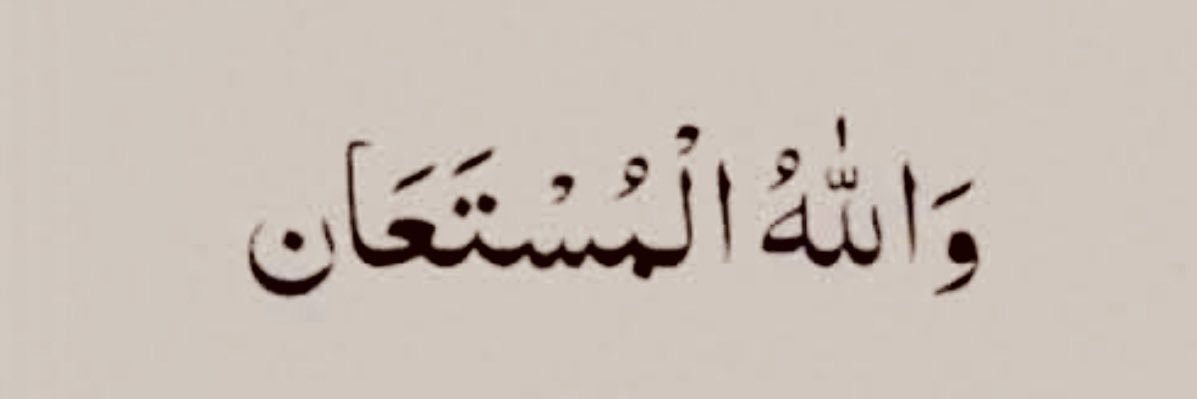 وَاللّٰهُ الْمُسْتَعَان